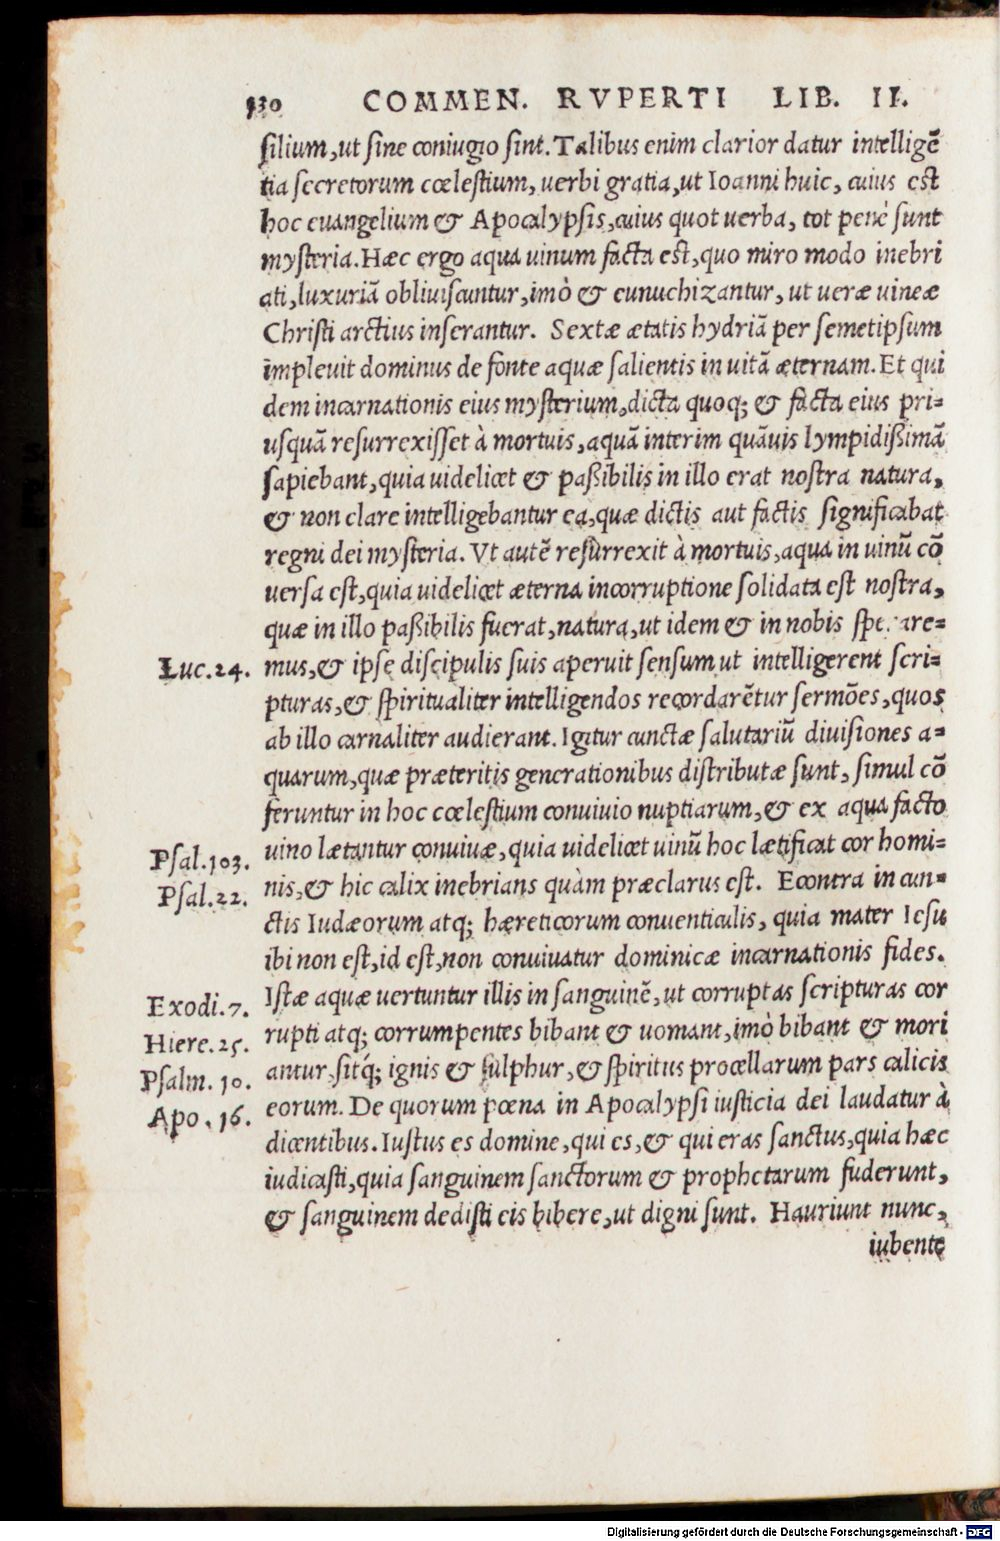 130 COMMEN. RVPERTI LIB. II.
silium, ut sine coniugio sint. Talibus enim clarior datur intelligē
tia secretorum cœlestium, uerbi gratia, ut Ioanni huic, cuius est
hoc euangelium & Apocalypsis, cuius quot uerba, tot penè sunt
mysteria. Hæc ergo aqua uinum facta est, quo miro modo inebri
ati, luxuriā obliuiscuntur, imò & eunuchizantur, ut ueræ uineæ
Christi arctius inserantur. Sextæ ætatis hydriā per semetipsum
impleuit dominus de fonte aquæ salientis in uitā æternam. Et qui
dem incarnationis eius mysterium, dicta quoq; & facta eius pri=
usquā resurrexisset à mortuis, aquā interim quāuis lympidißimā
sapiebant, quia uidelicet & paßibilis in illo erat nostra natura,
& non clare intelligebantur ea, quæ dictis aut factis significabat
regni dei mysteria. Vt autē resurrexit à mortuis, aqua in uinū cō
uersa est, quia uidelicet æterna incorruptione solidata est nostra,
quæ in illo paßibilis fuerat, natura, ut idem & in nobis speraremus=
Luc.24. mus, & ipse discipulis suis aperuit sensum ut intelligerent scri=
pturas, & spiritualiter intelligendos recordarētur sermōes, quos
ab illo carnaliter audierant. Igitur cunctæ salutariū diuisiones a=
quarum, quæ præteritis generationibus distributæ sunt, simul cō
feruntur in hoc cœlestium conuiuio nuptiarum, & ex aqua facto
Psal.103. uino lætantur conuiuæ, quia uidelicet uinū hoc lætificat cor homi=
Psal.22. nis, & hic calix inebrians quàm præclarus est. Econtra in cun=
ctis Iudæorum atq; hæreticorum conuenticulis, quia mater Iesu
ibi non est, id est, non conuiuatur dominicæ incarnationis fides.
Exodi.7. Istæ aquæ uertuntur illis in sanguinē, ut corruptas scripturas cor
Hiere.25. rupti atq; corrumpentes bibant & uomant, imò bibant & mori
Psalm.10. antur, sitq́; ignis & sulphur, & spiritus procellarum pars calicis
Apo.16. eorum. De quorum pœna in Apocalypsi iusticia dei laudatur à
dicentibus. Iustus es domine, qui es, & qui eras sanctus, quia hæc
iudicasti, quia sanguinem sanctorum & prophetarum fuderunt,
& sanguinem dedisti eis bibere, ut digni sunt. Hauriunt nunc,
iubente
Digitalisierung gefördert durch die Deutsche Forschungsgemeinschaft - DFG